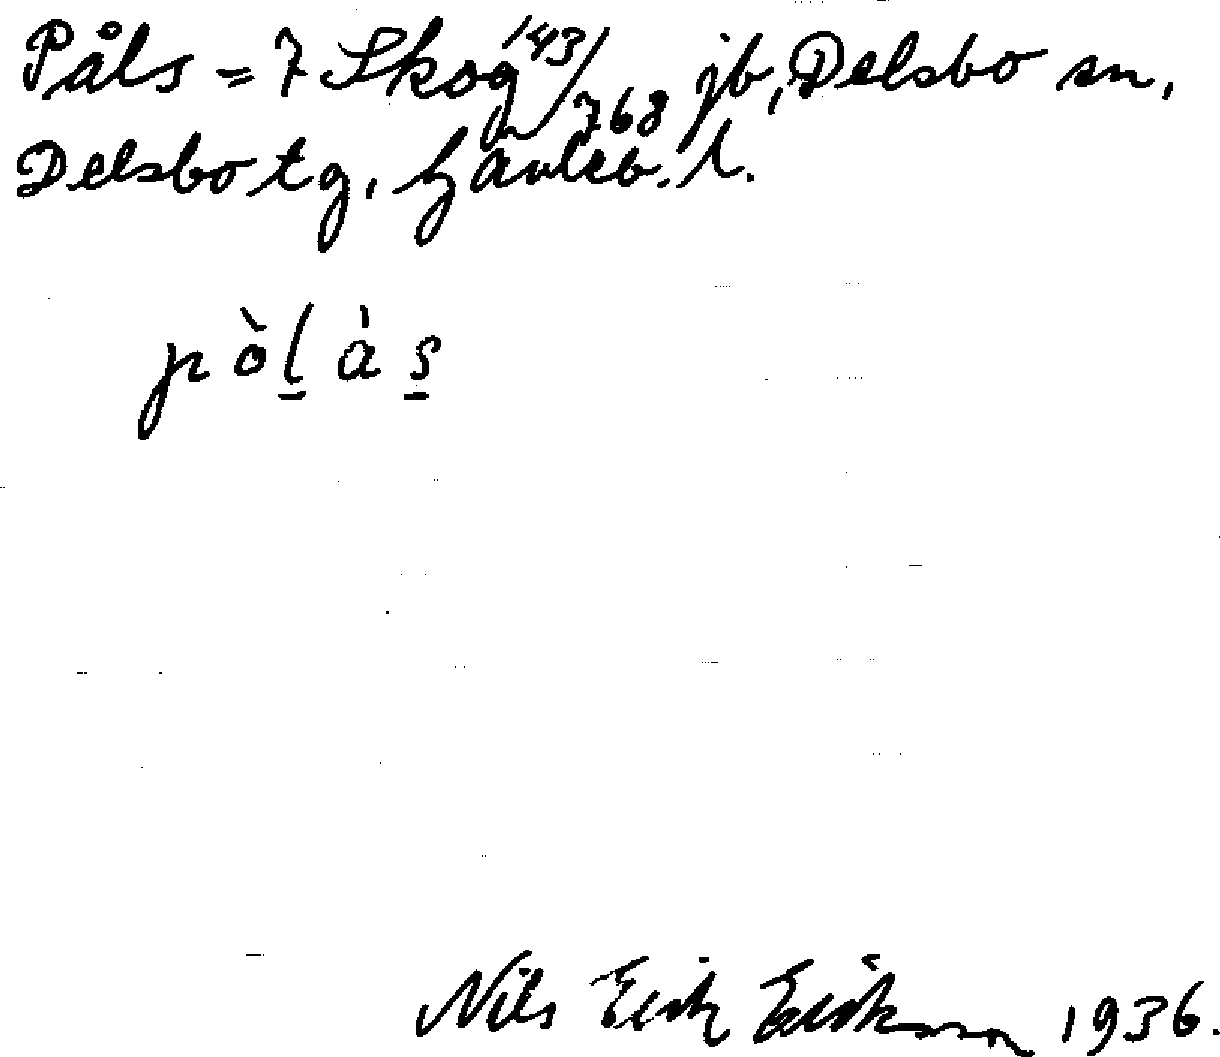 Påls = 7 Skog 143/768 jb, Delsbo sn,
Delsbo tg, Gävleb. l.
pòl̠ às̠
Nils Erik Eriksson 1936.